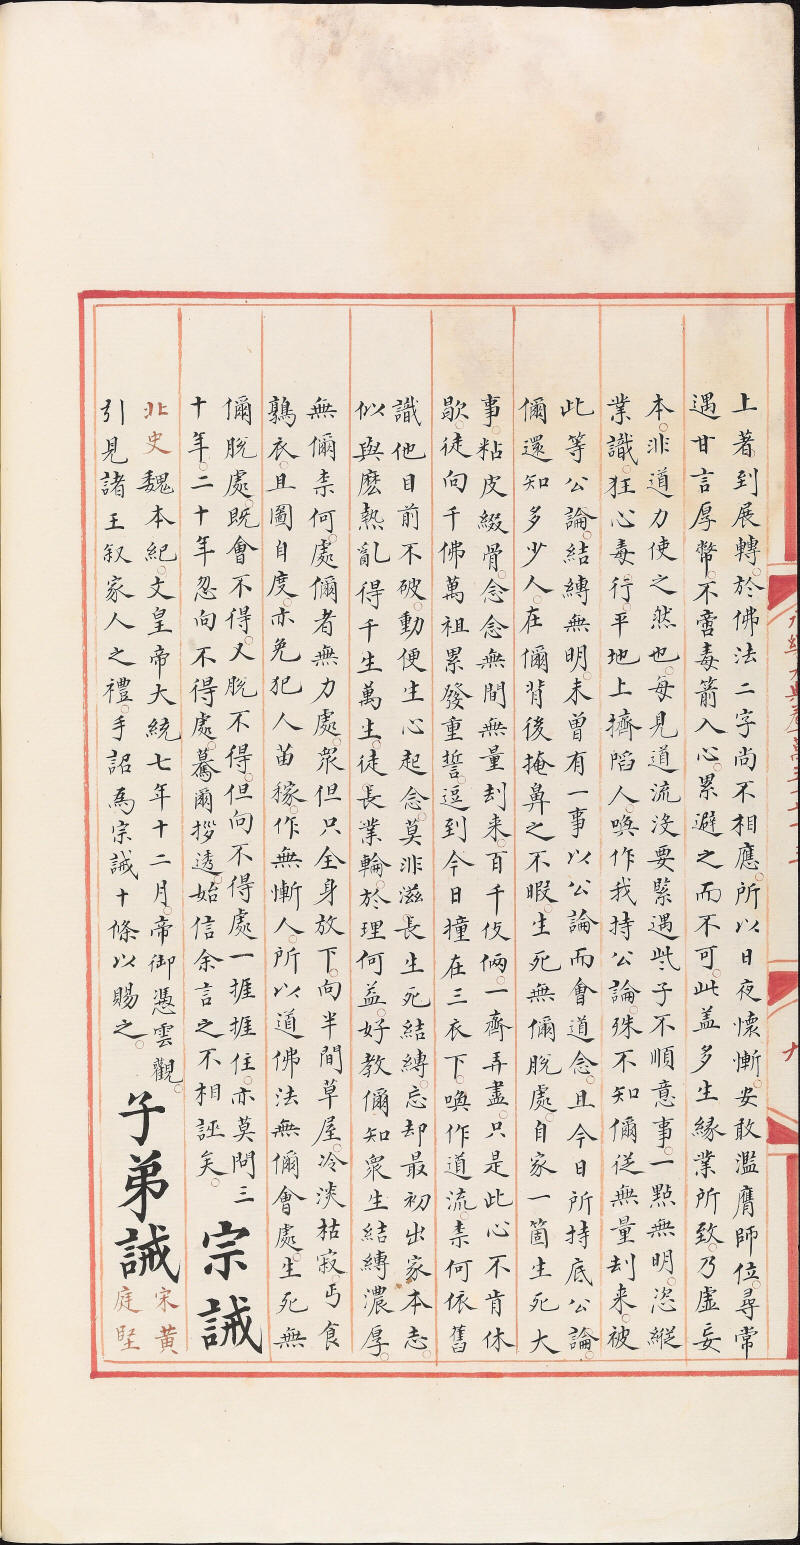 上著到展轉於佛法二字尚不相應所以日夜懷慚安敢濫膺師位尋常
遇甘言厚幣不啻毒箭入心累避之而不可此盖多生緣業所致乃虛妄
本非道力使之然也每見道流沒要緊遇些子不順意事一點無明恣縱
業識狂心毒行平地上擠陷人喚作我持公論殊不知儞從無量刦来被
此等公論結縛無明未曾有一事以公論而會道念且今日所持底公論
儞還知多少人在儞背後掩鼻之不暇生死無儞脫處自家一箇生死大
事粘皮綴骨念念無間無量刦来百千伎倆一齊弄盡只是此心不肯休
歇徒向千佛萬祖累發重誓逗到今日撞在三衣下喚作道流柰何依舊
識他目前不破動便生心起念莫非滋長生死結縛忘却最初出家本志
似與麽熱亂得千生萬生徒長業輪於理何益好教儞知衆生結縛濃厚
無儞柰何處儞者無力處衆但只全身放下向半間草屋冷淡枯寂丐食
鶉衣且圖自度亦免犯人苗稼作無慚人所以道佛法無儞會處生死無
儞脫處既會不得又脫不得但向不得處一捱捱住亦莫問三
十年二十年忽向不得處驀爾拶透始信余言之不相誣矣
宗誡
北史魏本紀文皇帝大統七年十二月帝御憑雲觀
引見諸王叙家人之禮手詔為宗誡十條以賜之
子弟誡
宋黄
庭堅
九